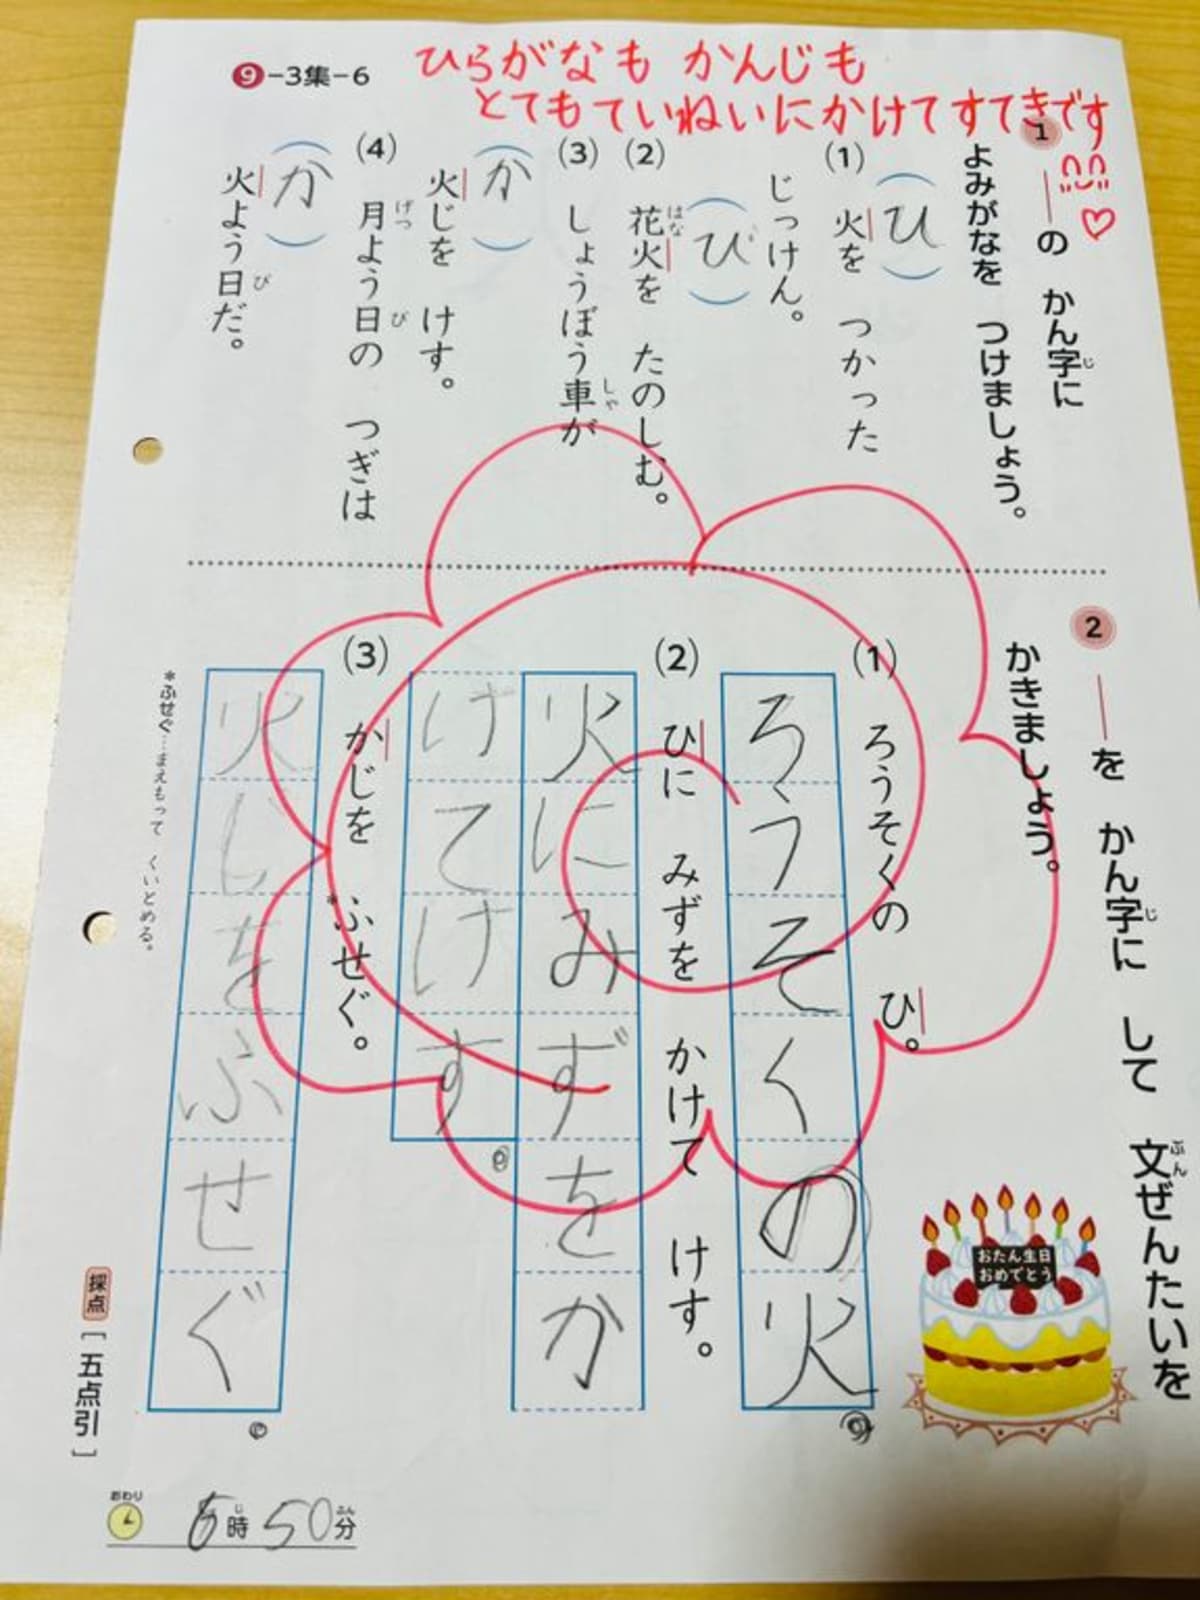 9-3集-6
ひらがなも かんじも
とてもていねいにかけてすてきです
1
——の かん字に
じ
よみがなを つけましょう。
(1)
(ひ)
火を つかった
じっけん。
(2)
(び)
花火を たのしむ。
はな
(3)
しょうぼう車が
しゃ
(か)
火じを けす。
(4)
月よう日の つぎは
げつ び
(か)
火よう日だ。
び
2
——を かん字に して 文ぜんたいを
じ ぶん
かきましょう。
おたん生日
おめでとう
(1)
ろうそくの ひ。
ろうそくの火
(2)
ひに みずを かけて けす。
火にみずをか
けてけす
(3)
かじを *ふせぐ。
火じをふせぐ
*ふせぐ…まえもって くいとめる。
採点[五点引]
おわり
6時50分
じ ぷん